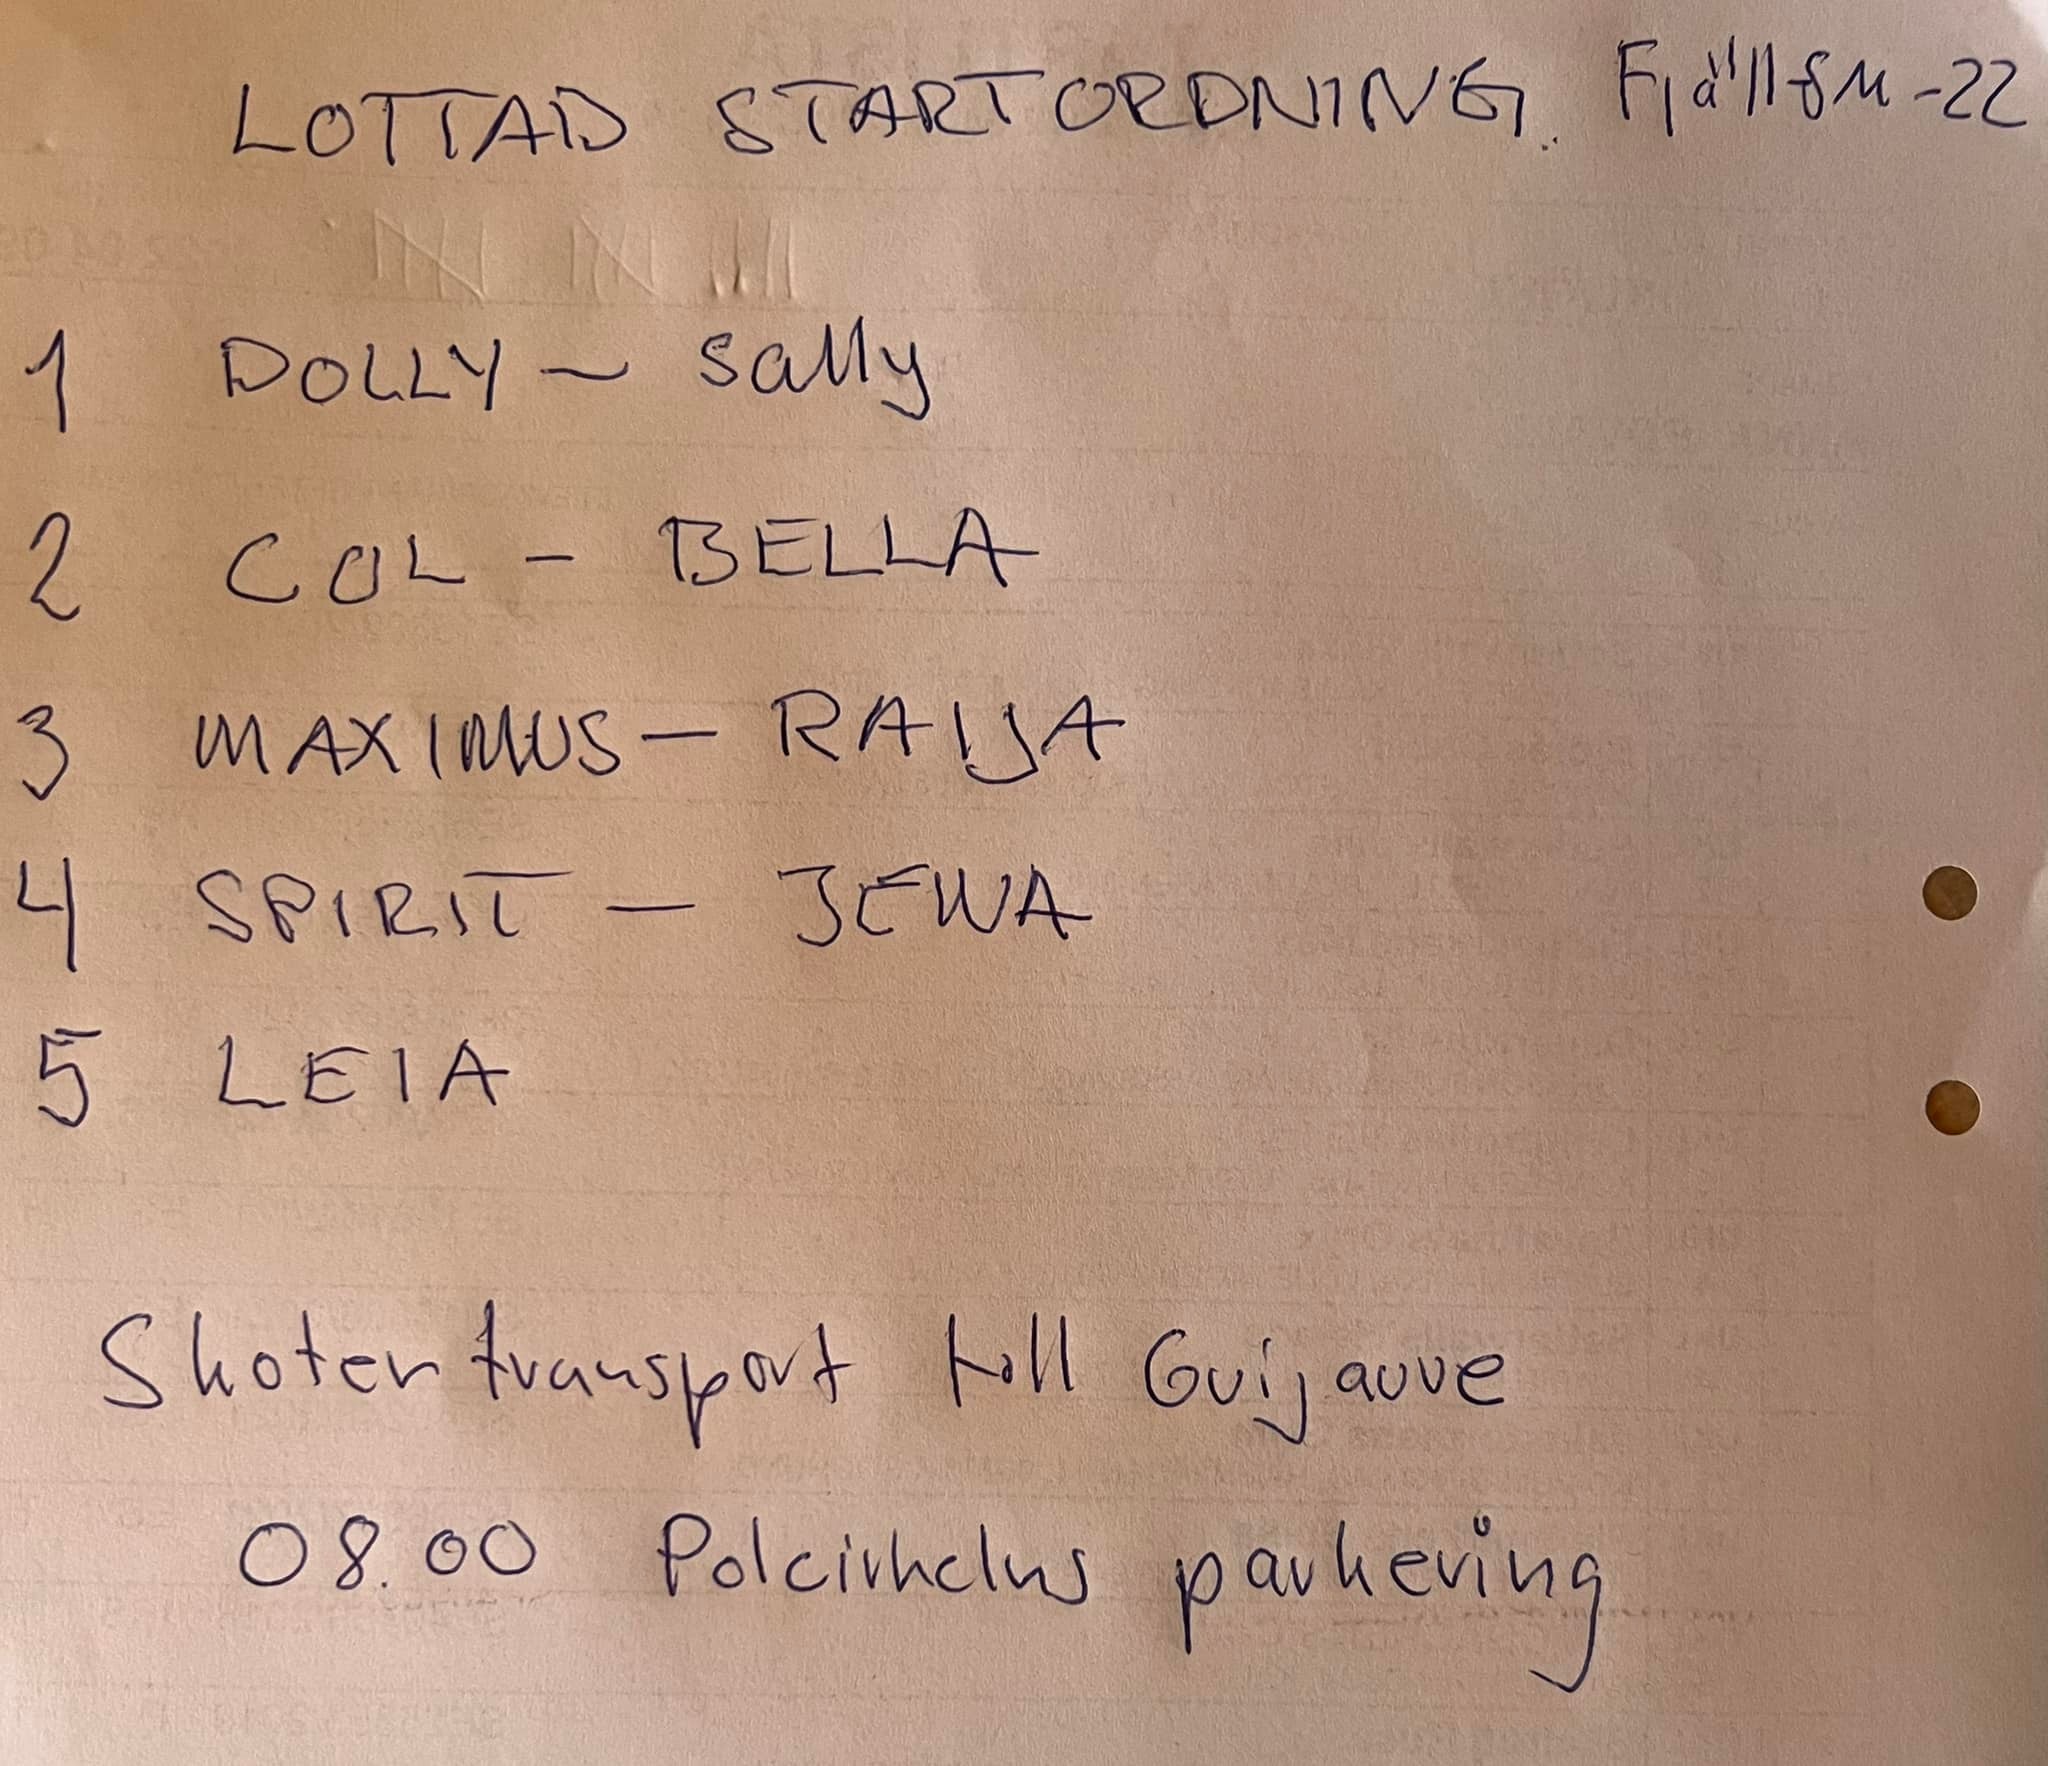 LOTTAD STARTORDNING. Fjällsm -22
1 DOLLY - Sally
2 COL - BELLA
3 MAXIMUS - RAIJA
4 SPIRIT - JEWA
5 LEIA
Skotertransport till Guijauve
08.00 Polcirkelns parkering